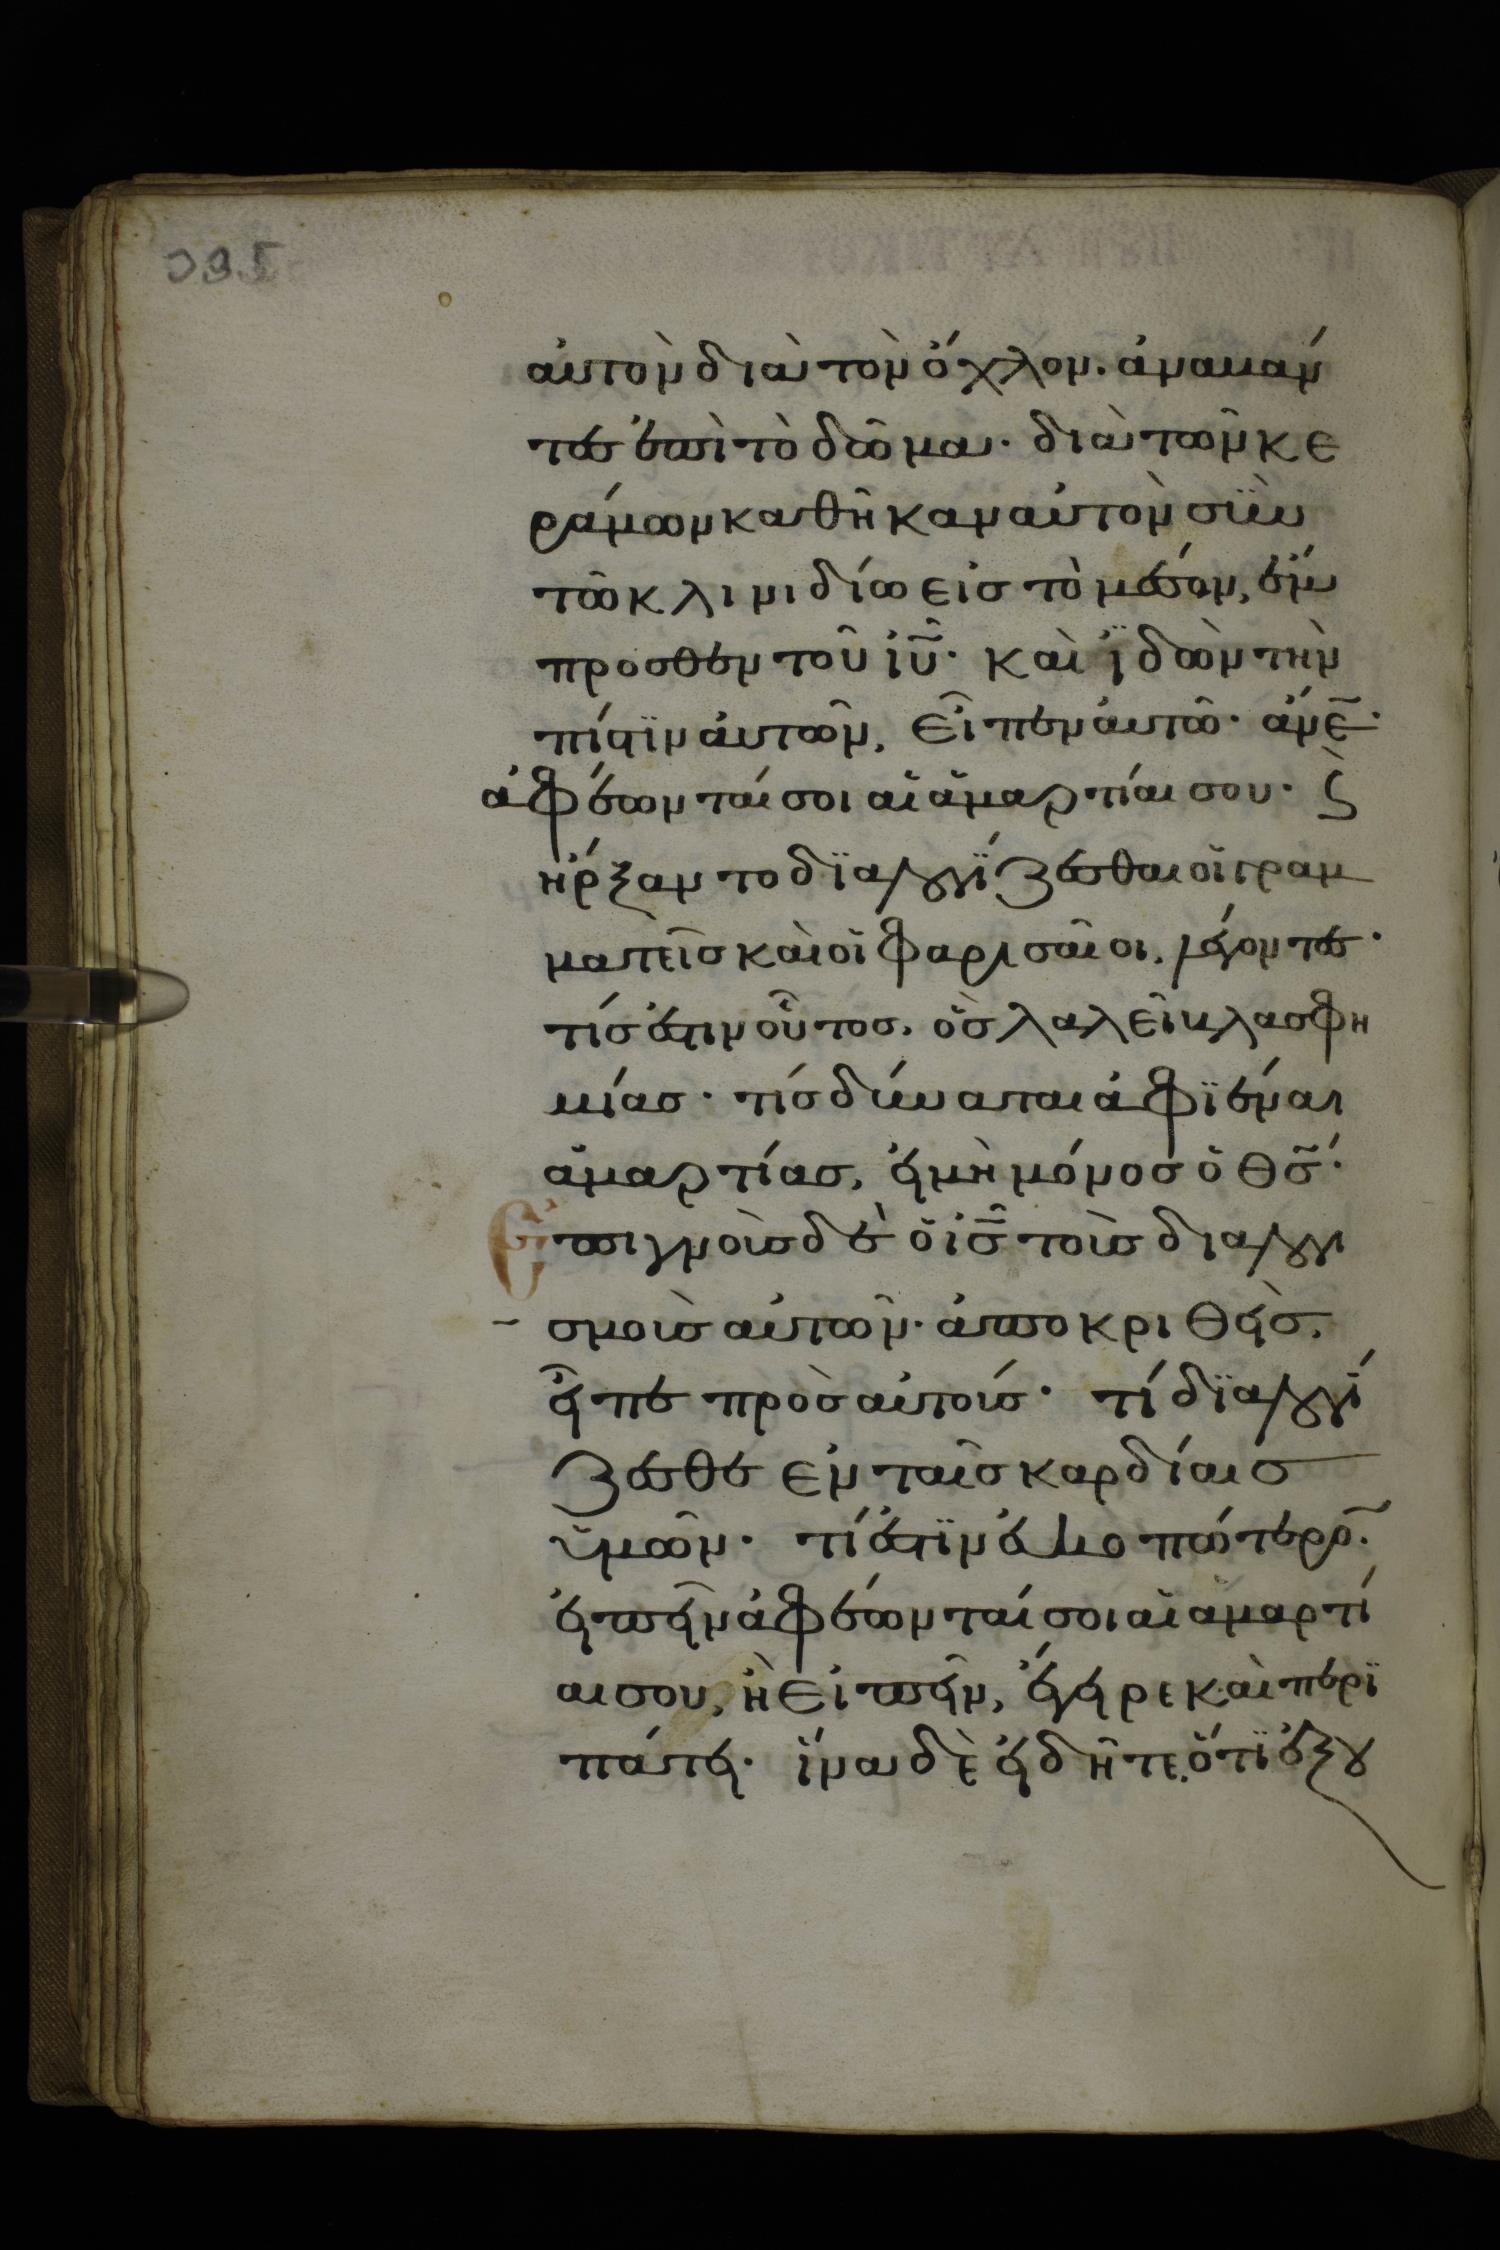 αὐτὸν διὰ τὸν ὄχλον. ἀναβάν
τες ἐπὶ τὸ δῶμα· διὰ τῶν κε
ράμων καθῆκαν αὐτὸν σὺν
τῶ κλινιδίω εἰς τὸ μέσον, ἔμ
προσθεν τοῦ ἰῦ· καὶ ἰδὼν τὴν
πίστϊν αὐτῶν, εἶπεν αὐτῶ· ἄνε·
ἀφέωνταί σοι αἱ ἁμαρτίαι σου· ϛ
ἤρξαντο δϊαλογϊζεσθαι οἱ γραμ
ματεῖς καὶ οἱ φαρισαῖοι, λέγοντες·
τίς ἐστιν οὗτος, ὃς λαλεῖ βλασφη
μίας· τίς δύναται ἀφϊέναι
ἁμαρτίας, εἰ μὴ μόνος ὁ θς·
Ἐπιγνοὺς δὲ ὁ ἰς τοὺς διαλογι
σμοὺς αὐτῶν· ἀποκριθεὶς,
εἶπε πρὸς αὐτούς· τί δϊαλογί
ζεσθε ἐν ταῖς καρδίαις
ὑμῶν· τί ἐστϊν εὐκοπώτερο·
εἰπεῖν ἀφέωνταί σοι αἱ ἁμαρτί
αι σου, ἢ εἰπεῖν, ἔγειρε καὶ περϊ
πάτει· ἵνα δὲ εἰδῆτε, ὅτϊ ἐξου